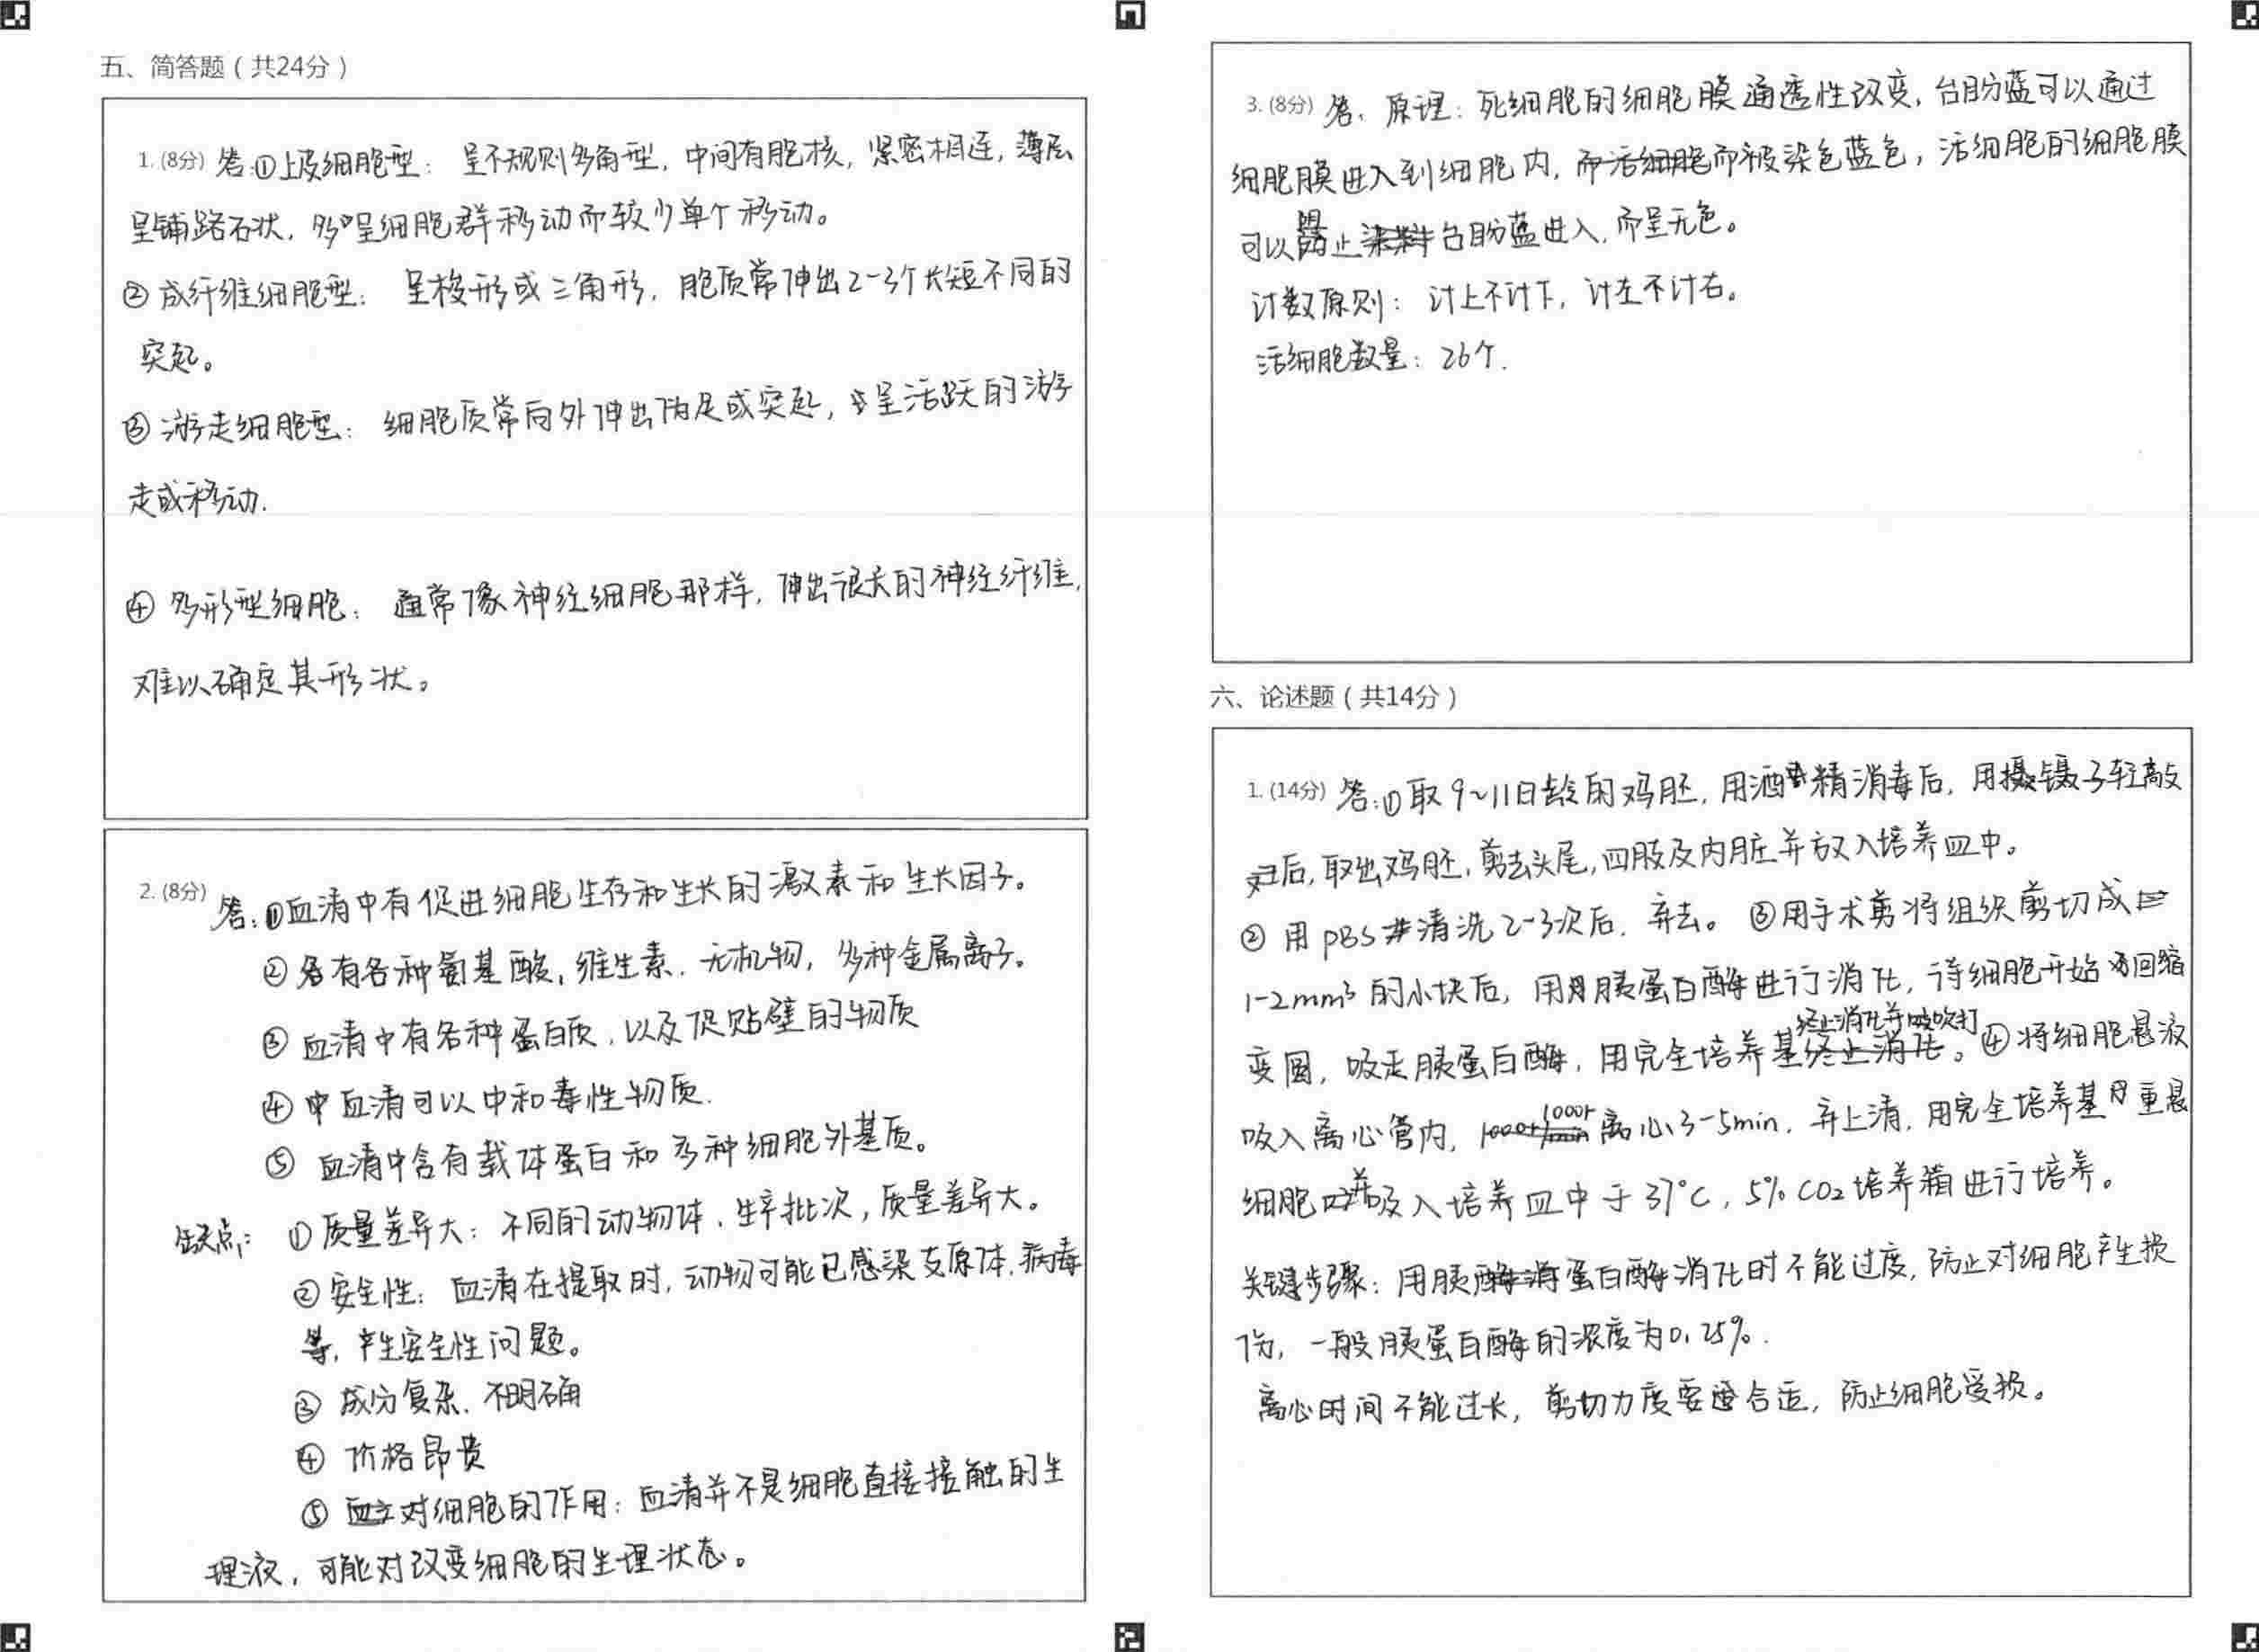 五、简答题（共24分）
1. (8分) 答:①上皮细胞型： 呈不规则多角型，中间有胞核，紧密相连，薄层
呈铺路石状，多呈细胞群移动而较少单个移动。
② 成纤维细胞型： 呈梭形或三角形，胞质常伸出2-3个长短不同的
突起。
③ 游走细胞型： 细胞质常向外伸出伪足或突起，呈活跃的游
走或移动.
④ 多形型细胞： 通常像神经细胞那样，伸出很长的神经纤维，
难以确定其形状。
2. (8分) 答：①血清中有促进细胞生存和生长的激素和生长因子。
② 含有各种氨基酸，维生素、无机物，多种金属离子。
③ 血清中有各种蛋白质，以及促贴壁的物质
④ 血清可以中和毒性物质.
⑤ 血清中含有载体蛋白和多种细胞外基质。
缺点： ①质量差异大：不同的动物体、生产批次，质量差异大。
②安全性：血清在提取时，动物可能已感染支原体、病毒
等，产生安全性问题。
③ 成分复杂、不明确
④ 价格昂贵
⑤ 对细胞的作用：血清并不是细胞直接接触的生
理液，可能对改变细胞的生理状态。
3. (8分) 答、原理：死细胞的细胞膜通透性改变，台盼蓝可以通过
细胞膜进入到细胞内，而被染色蓝色，活细胞的细胞膜
可以阻止台盼蓝进入，而呈无色。
计数原则：计上不计下，计左不计右。
活细胞数量：26个.
六、论述题（共14分）
1. (14分) 答:①取9~11日龄的鸡胚，用酒精消毒后，用镊子轻敲
后，取出鸡胚，剪去头尾，四肢及内脏并放入培养皿中。
② 用PBS清洗2-3次后，弃去。③用手术剪将组织剪切成
1-2mm³的小块后，用胰蛋白酶进行消化，待细胞开始回缩
变圆，吸走胰蛋白酶，用完全培养基终止消化并吹打。④将细胞悬液
吸入离心管内，1000r离心3-5min，弃上清，用完全培养基重悬
细胞并吸入培养皿中于37℃，5% CO₂培养箱进行培养。
关键步骤：用胰蛋白酶消化时不能过度，防止对细胞产生损
伤，一般胰蛋白酶的浓度为0.25%.
离心时间不能过长，剪切力度要合适，防止细胞受损。